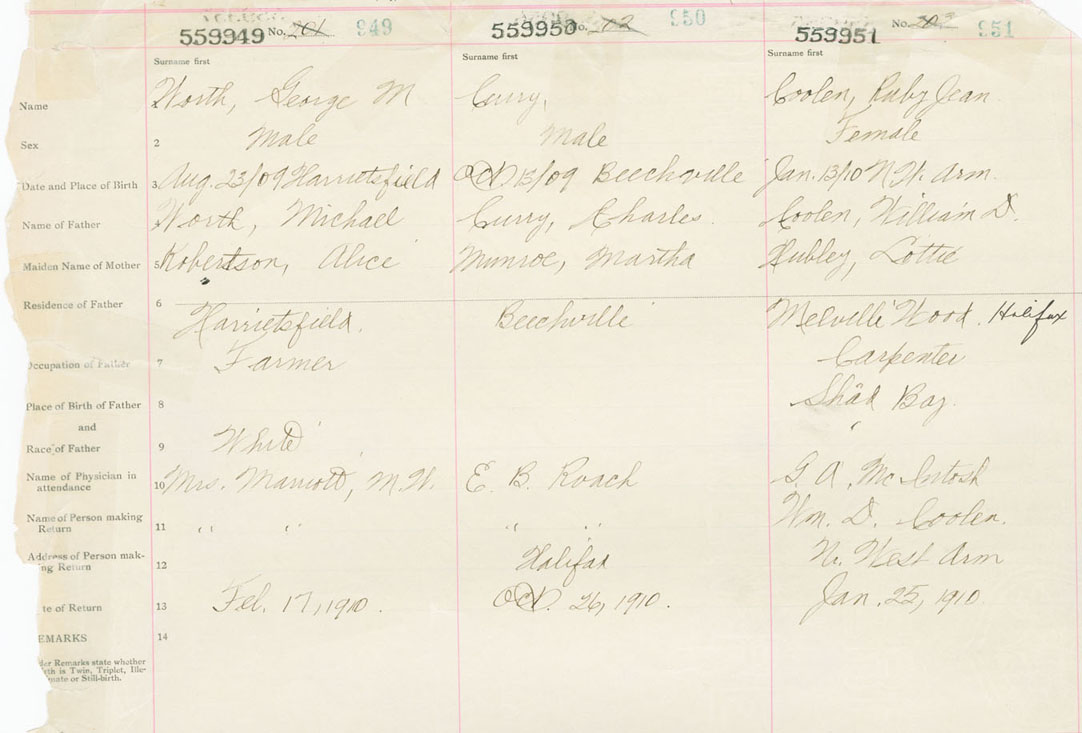 559949 No. 201 949 559950 No. 202 950 559951 No. 951
Surname first Surname first Surname first
Name Worth, George M Curry, Coolen, Ruby Jean
Sex 2 Male Male Female
Date and Place of Birth 3 Aug. 23/09 Harrietsfield Oct 13/09 Beechville Jan. 13/10 N.W. Arm.
Name of Father Worth, Michael Curry, Charles. Coolen, William D.
Maiden Name of Mother 5 Robertson, Alice Munroe, Martha Hubley, Lottie
Residence of Father 6 Harrietsfield. Beechville Melville Wood. Halifax
Occupation of Father 7 Farmer Carpenter
Place of Birth of Father 8 Shad Bay.
and
Race of Father 9 White
Name of Physician in attendance 10 Mrs. Marriott, M.W. E. B. Roach G. A. McIntosh
Name of Person making Return 11 " " " " Wm. D. Coolen.
Address of Person mak-
ing Return 12 Halifax N. West Arm
te of Return 13 Feb. 17, 1910. Oct. 26, 1910. Jan. 25, 1910
EMARKS 14
der Remarks state whether
th is Twin, Triplet, Ille-
mate or Still-birth.